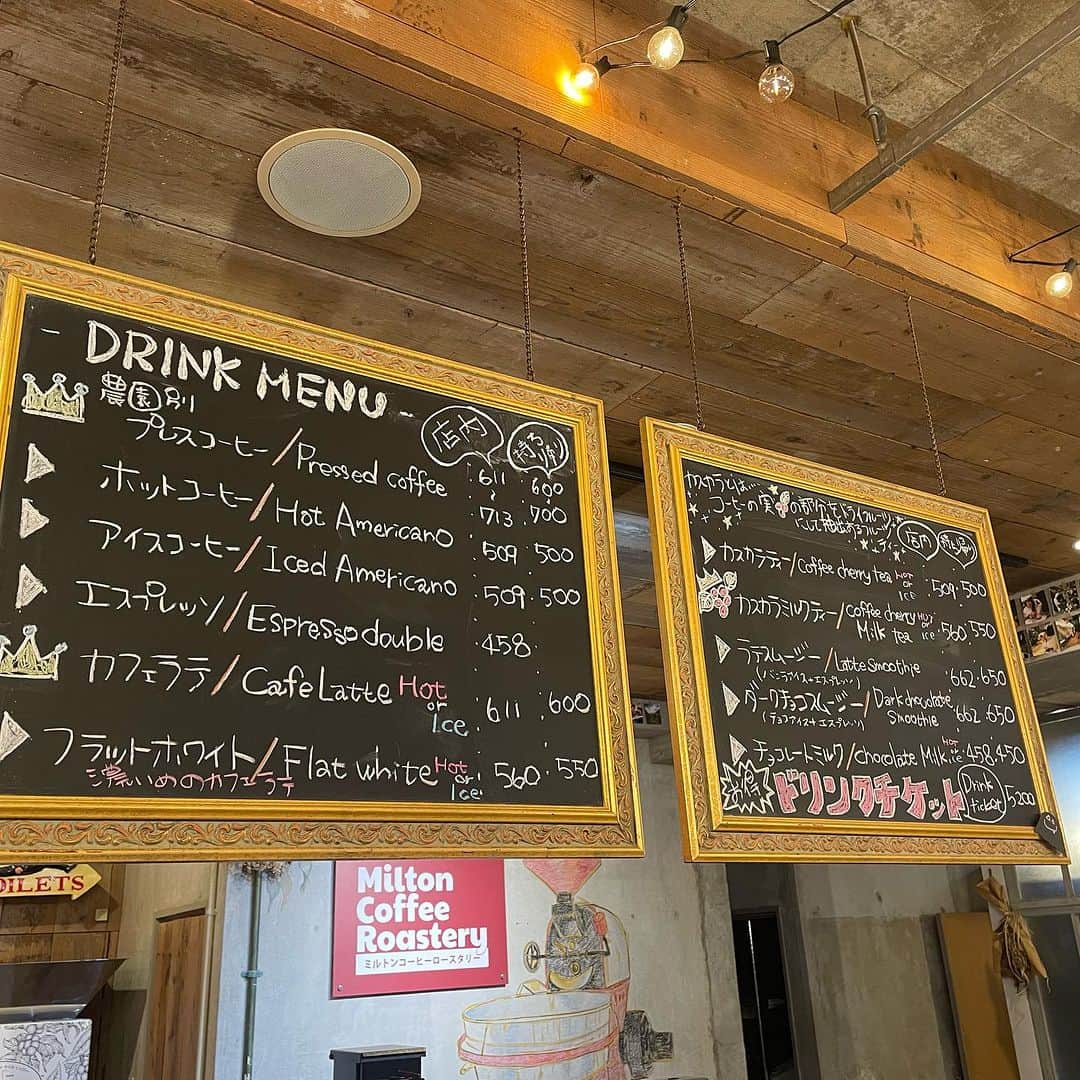 - DRINK MENU -
農園別
プレスコーヒー/Pressed coffee
店内
持ち帰り
611 600
~ ~
713 700
ホットコーヒー/Hot Americano 509 500
アイスコーヒー/Iced Americano 509 500
エスプレッソ/Espresso double 458
カフェラテ/Cafe Latte Hot or Ice 611 600
フラットホワイト/Flat white Hot or Ice 560 550
濃いめのカフェラテ
カスカラとは...
コーヒーの実の部分をドライフルーツ
にして抽出するフルーツ
ティー
店内
持ち帰り
カスカラティー/Coffee cherry tea HOT or ICE 509 500
カスカラミルクティー/Coffee cherry Milk tea HOT or ice 560 550
ラテスムージー/Latte Smoothie 662 650
(バニラアイス+エスプレッソ)
ダークチョコスムージー/Dark chocolate Smoothie 662 650
(チョコアイス+エスプレッソ)
チョコレートミルク/chocolate Milk HOT ice 458 450
ドリンクチケット Drink ticket 5200
OILETS
Milton
Coffee
Roastery
ミルトンコーヒーロースタリー